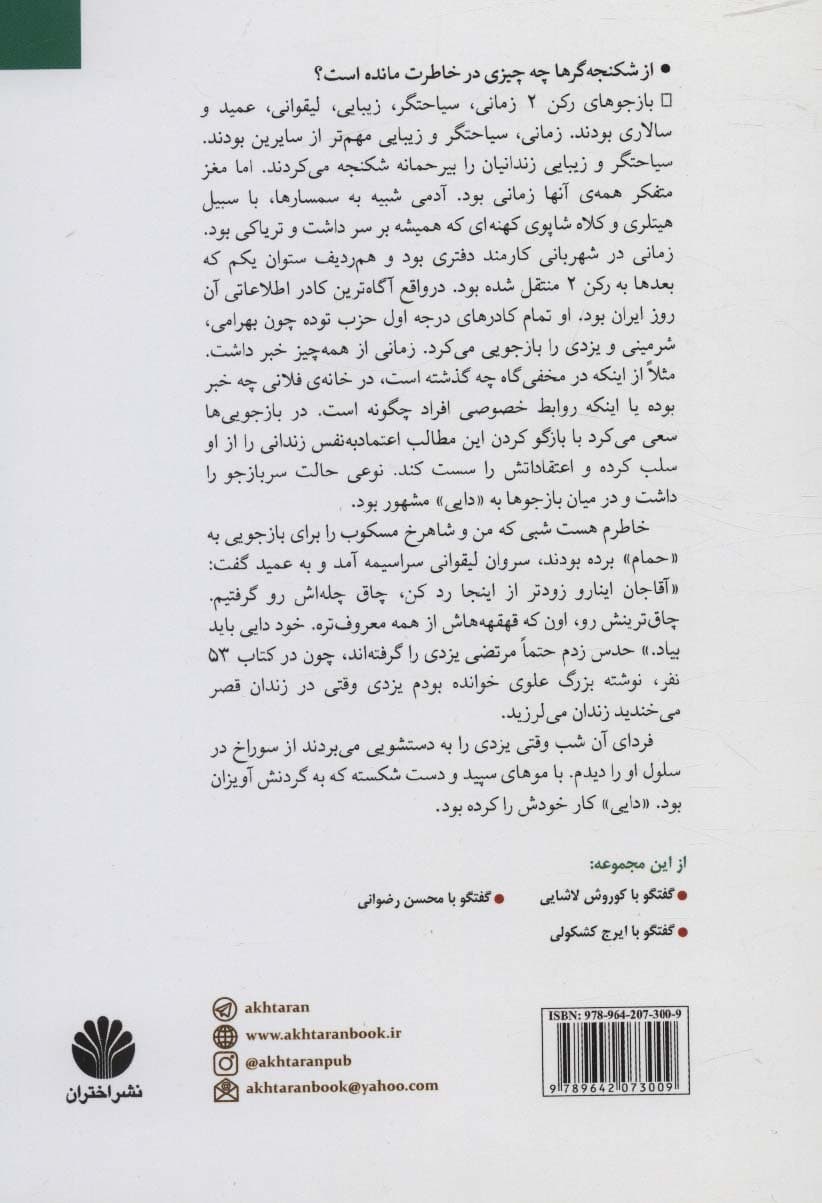 ● از شکنجه‌گرها چه چیزی در خاطرت مانده است؟
▯ بازجوهای رکن ۲ زمانی، سیاحتگر، زیبایی، لیقوانی، عمید و
سالاری بودند. زمانی، سیاحتگر و زیبایی مهم‌تر از سایرین بودند.
سیاحتگر و زیبایی زندانیان را بیرحمانه شکنجه می‌کردند. اما مغز
متفکر همه‌ی آنها زمانی بود. آدمی شبیه به سمسارها، با سبیل
هیتلری و کلاه شاپوی کهنه‌ای که همیشه بر سر داشت و تریاکی بود.
زمانی در شهربانی کارمند دفتری بود و هم‌ردیف ستوان یکم که
بعدها به رکن ۲ منتقل شده بود. درواقع آگاه‌ترین کادر اطلاعاتی آن
روز ایران بود، او تمام کادرهای درجه اول حزب توده چون بهرامی،
شرمینی و یزدی را بازجویی می‌کرد. زمانی از همه‌چیز خبر داشت.
مثلاً از اینکه در مخفی‌گاه چه گذشته است، در خانه‌ی فلانی چه خبر
بوده یا اینکه روابط خصوصی افراد چگونه است. در بازجویی‌ها
سعی می‌کرد با بازگو کردن این مطالب اعتمادبه‌نفس زندانی را از او
سلب کرده و اعتقاداتش را سست کند. نوعی حالت سربازجو را
داشت و در میان بازجوها به «دایی» مشهور بود.
خاطرم هست شبی که من و شاهرخ مسکوب را برای بازجویی به
«حمام» برده بودند، سروان لیقوانی سراسیمه آمد و به عمید گفت:
«آقاجان اینارو زودتر از اینجا رد کن، چاق چله‌اش رو گرفتیم.
چاق‌ترینش رو، اون که قهقهه‌هاش از همه معروف‌تره. خود دایی باید
بیاد.» حدس زدم حتماً مرتضی یزدی را گرفته‌اند، چون در کتاب ۵۳
نفر، نوشته بزرگ علوی خوانده بودم یزدی وقتی در زندان قصر
می‌خندید زندان می‌لرزید.
فردای آن شب وقتی یزدی را به دستشویی می‌بردند از سوراخ در
سلول او را دیدم. با موهای سپید و دست شکسته که به گردنش آویزان
بود. «دایی» کار خودش را کرده بود.
از این مجموعه:
● گفتگو با کوروش لاشایی
● گفتگو با محسن رضوانی
● گفتگو با ایرج کشکولی
akhtaran
www.akhtaranbook.ir
@akhtaranpub
akhtaranbook@yahoo.com
نشر اختران
ISBN: 978-964-207-300-9
9 789642 073009